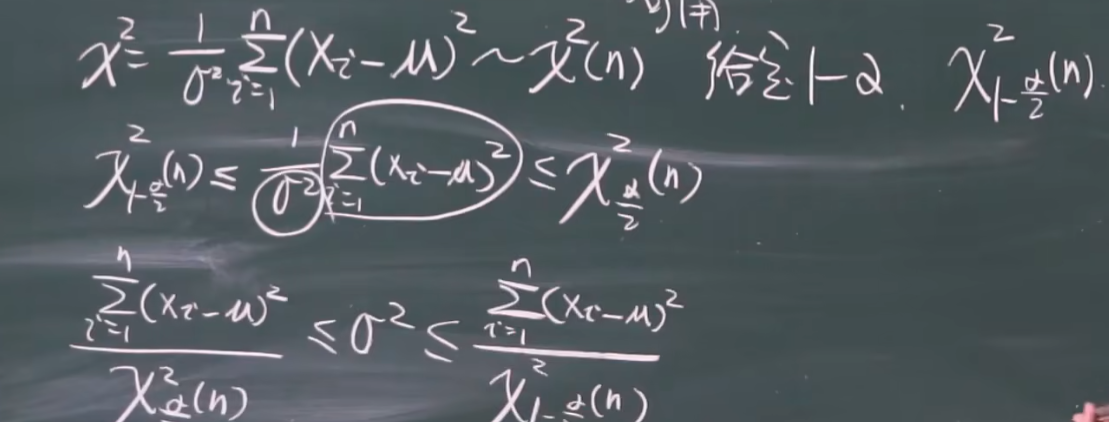 χ² = 1/σ² Σ_{i=1}^{n} (X_i − μ)² ~ χ²(n) 给定 1−α. χ²_{1−α/2}(n).
χ²_{1−α/2}(n) ≤ 1/σ² Σ_{i=1}^{n} (X_i − μ)² ≤ χ²_{α/2}(n)
Σ_{i=1}^{n} (X_i − μ)² / χ²_{α/2}(n) ≤ σ² ≤ Σ_{i=1}^{n} (X_i − μ)² / χ²_{1−α/2}(n)